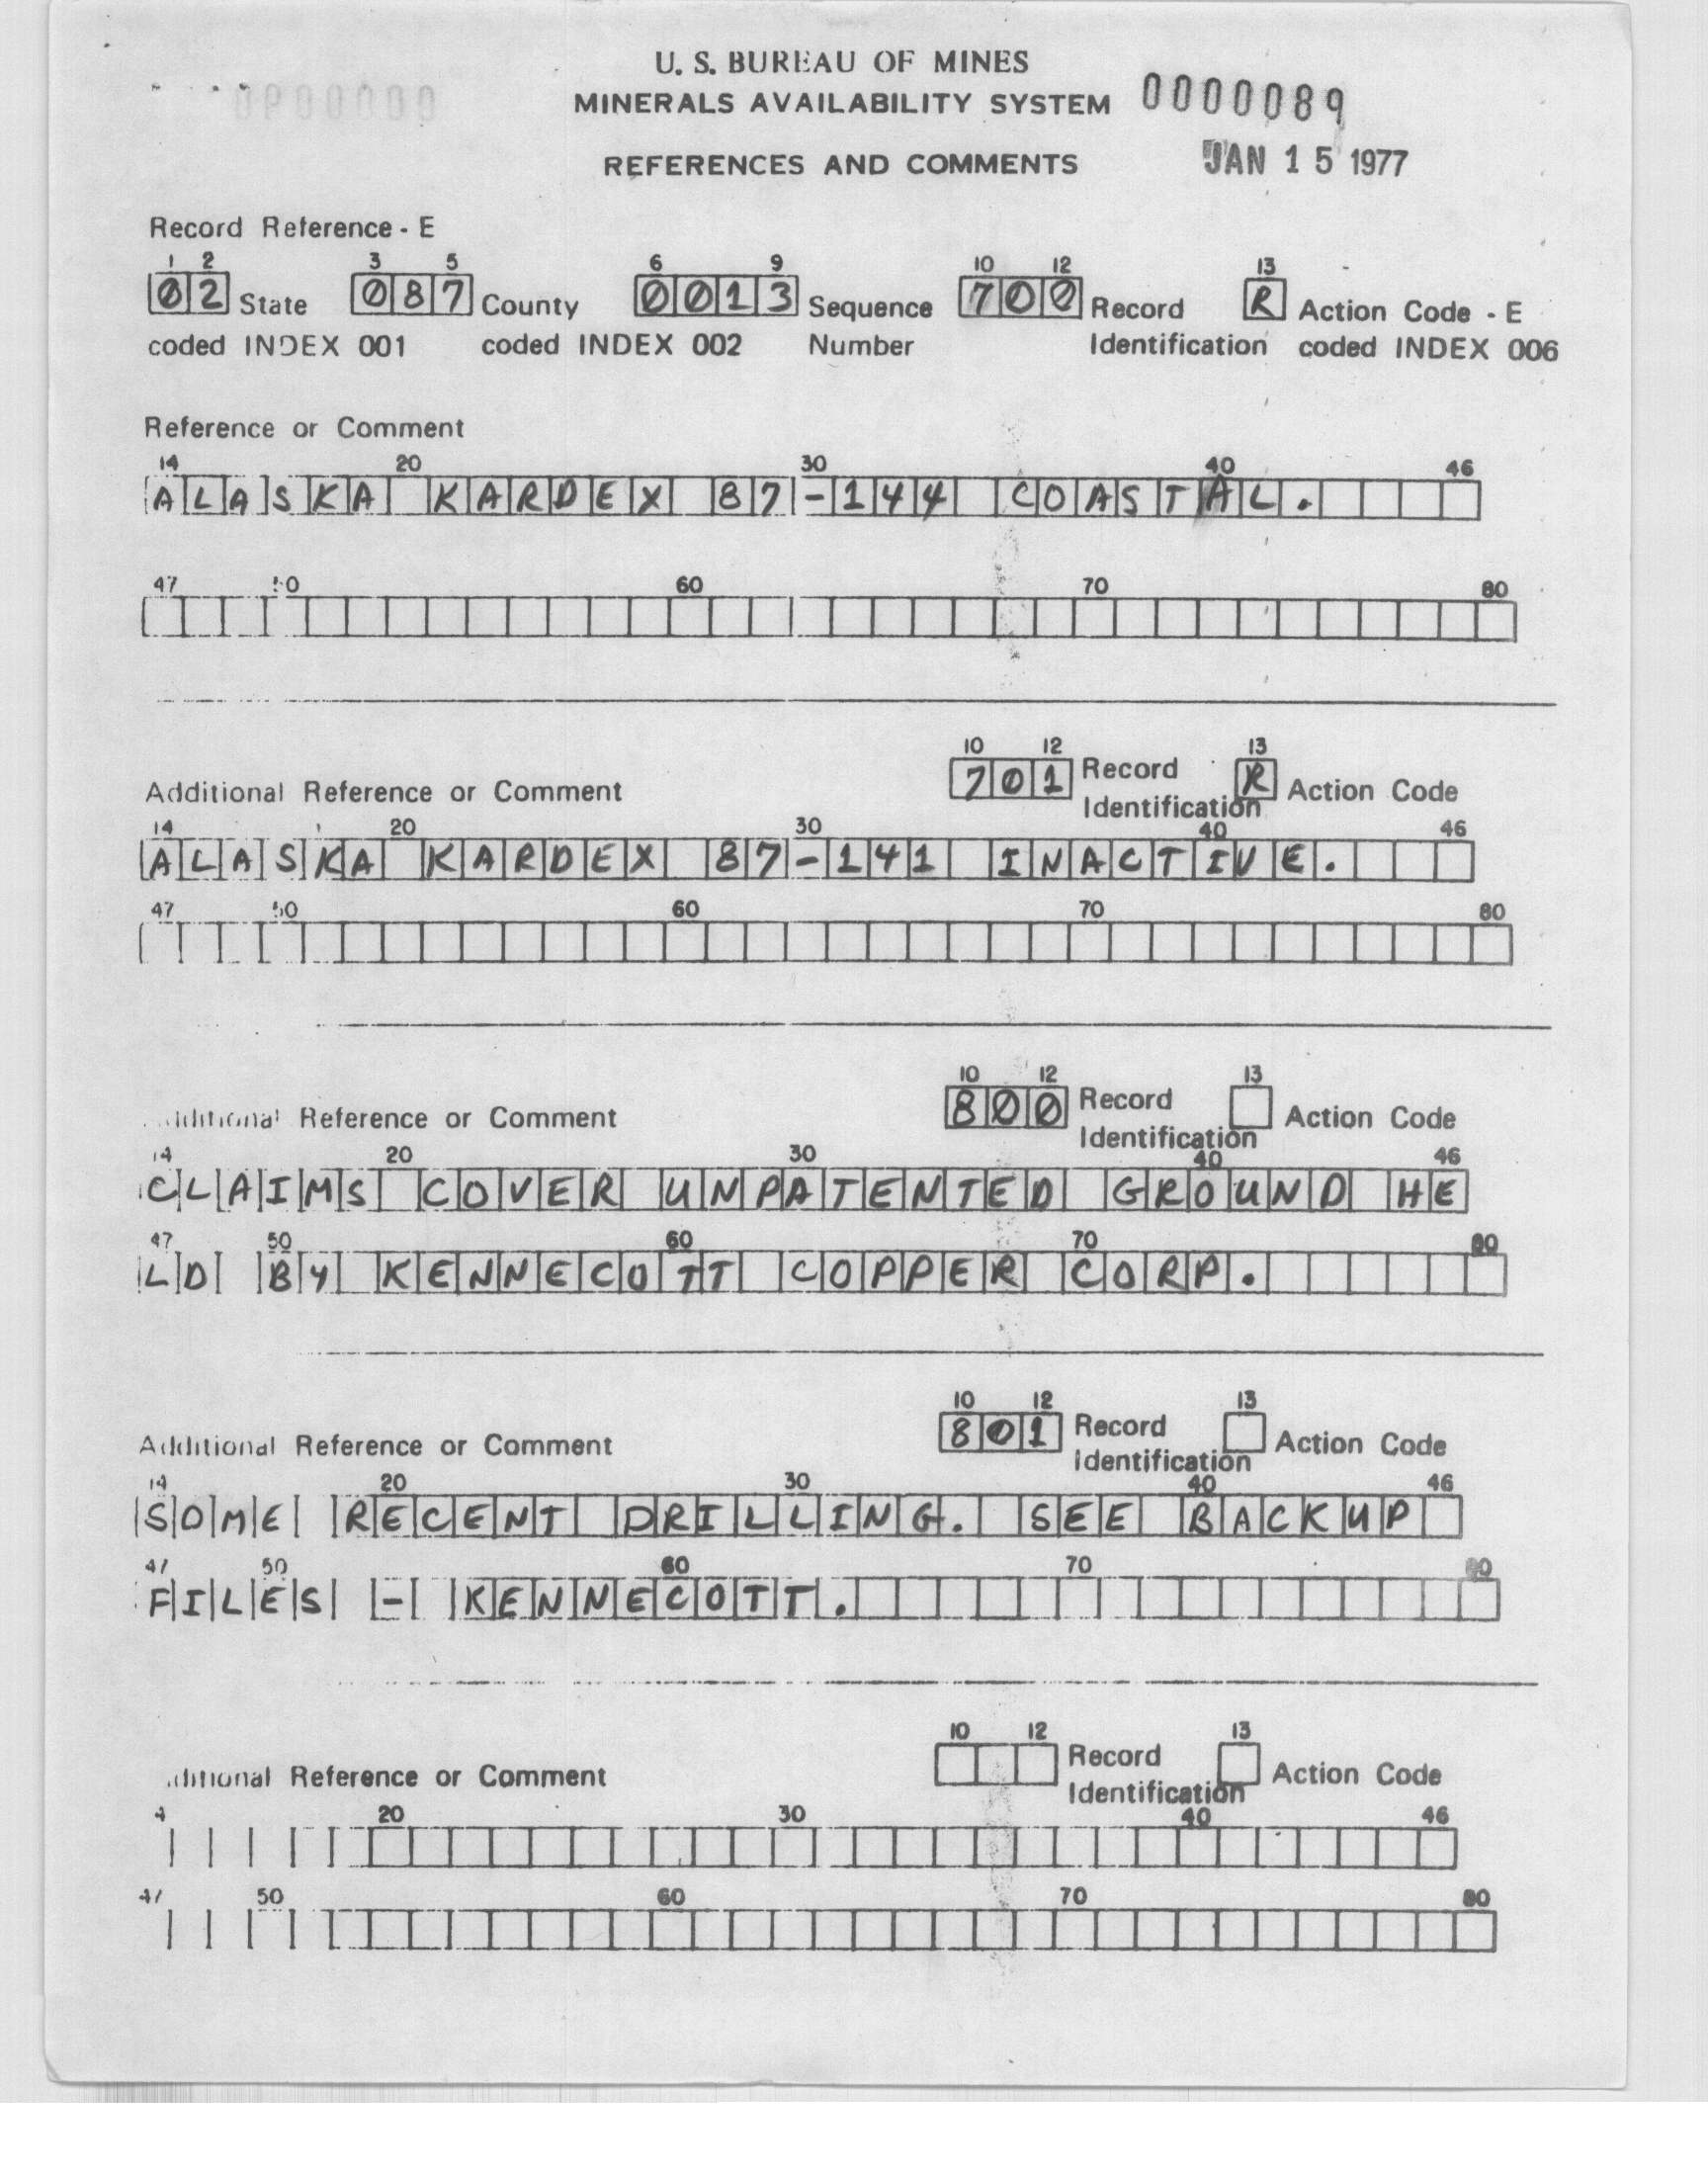 U. S. BUREAU OF MINES
MINERALS AVAILABILITY SYSTEM 0000089
REFERENCES AND COMMENTS JAN 15 1977
Record Reference - E
1 2 3 5 6 9 10 12 13
02 State 087 County 0013 Sequence 700 Record R Action Code - E
coded INDEX 001 coded INDEX 002 Number Identification coded INDEX 006
Reference or Comment
14 20 30 40 46
ALASKA KARDEX 87-144 COASTAL.
47 50 60 70 80
10 12 13
701 Record R Action Code
Additional Reference or Comment Identification
14 20 30 40 46
ALASKA KARDEX 87-141 INACTIVE.
47 50 60 70 80
10 12 13
800 Record Action Code
Additional Reference or Comment Identification
14 20 30 40 46
CLAIMS COVER UNPATENTED GROUND HE
47 50 60 70 80
LD BY KENNECOTT COPPER CORP.
10 12 13
801 Record Action Code
Additional Reference or Comment Identification
14 20 30 40 46
SOME RECENT DRILLING. SEE BACKUP
47 50 60 70 80
FILES - KENNECOTT.
10 12 13
Record Action Code
Additional Reference or Comment Identification
4 20 30 40 46
47 50 60 70 80